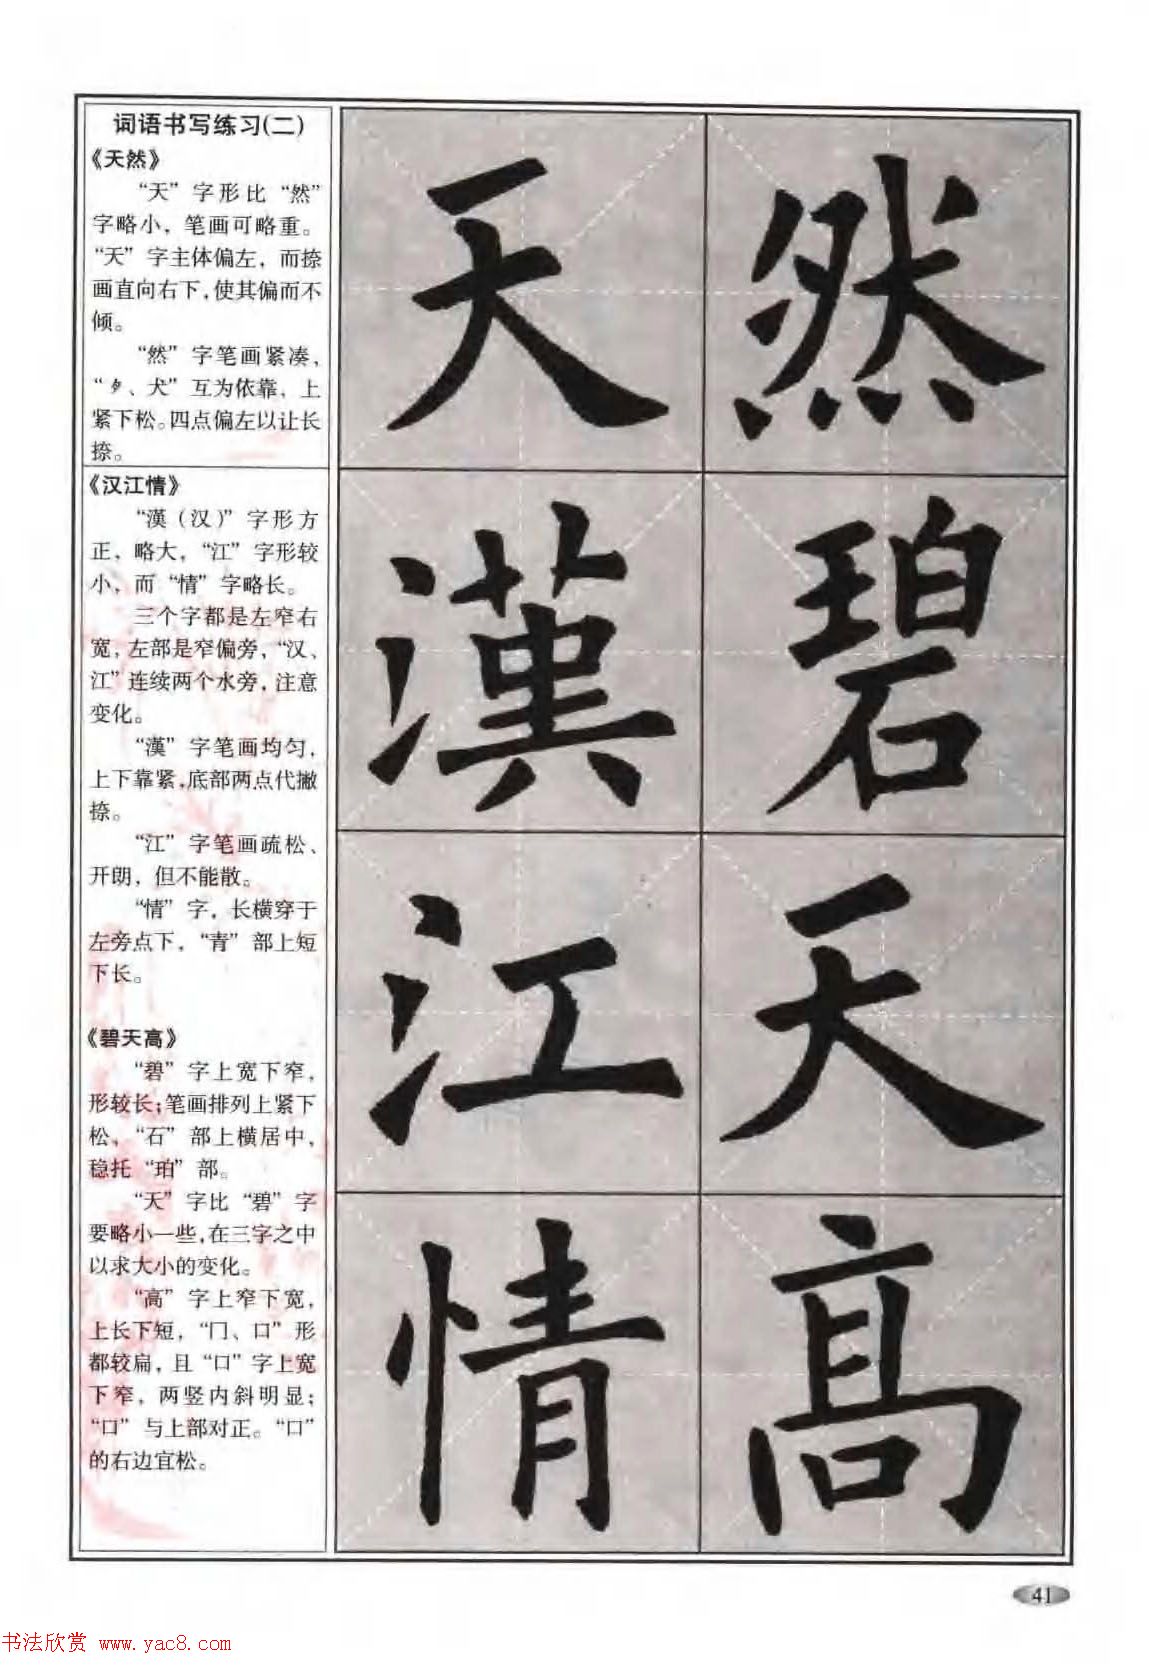 词语书写练习(二)
《天然》
“天”字形比“然”
字略小，笔画可略重。
“天”字主体偏左，而捺
画直向右下，使其偏而不
倾。
“然”字笔画紧凑，
“⺈、犬”互为依靠，上
紧下松。四点偏左以让长
捺。
《汉江情》
“漢（汉）”字形方
正，略大，“江”字形较
小，而“情”字略长。
三个字都是左窄右
宽，左部是窄偏旁，“汉、
江”连续两个水旁，注意
变化。
“漢”字笔画均匀，
上下靠紧，底部两点代撇
捺。
“江”字笔画疏松、
开朗，但不能散。
“情”字，长横穿于
左旁点下，“青”部上短
下长。
《碧天高》
“碧”字上宽下窄，
形较长；笔画排列上紧下
松，“石”部上横居中，
稳托“珀”部。
“天”字比“碧”字
要略小一些，在三字之中
以求大小的变化。
“高”字上窄下宽，
上长下短，“冂、口”形
都较扁，且“口”字上宽
下窄，两竖内斜明显；
“口”与上部对正。“口”
的右边宜松。
天然
漢碧
江天
情高
41
书法欣赏 www.yac8.com